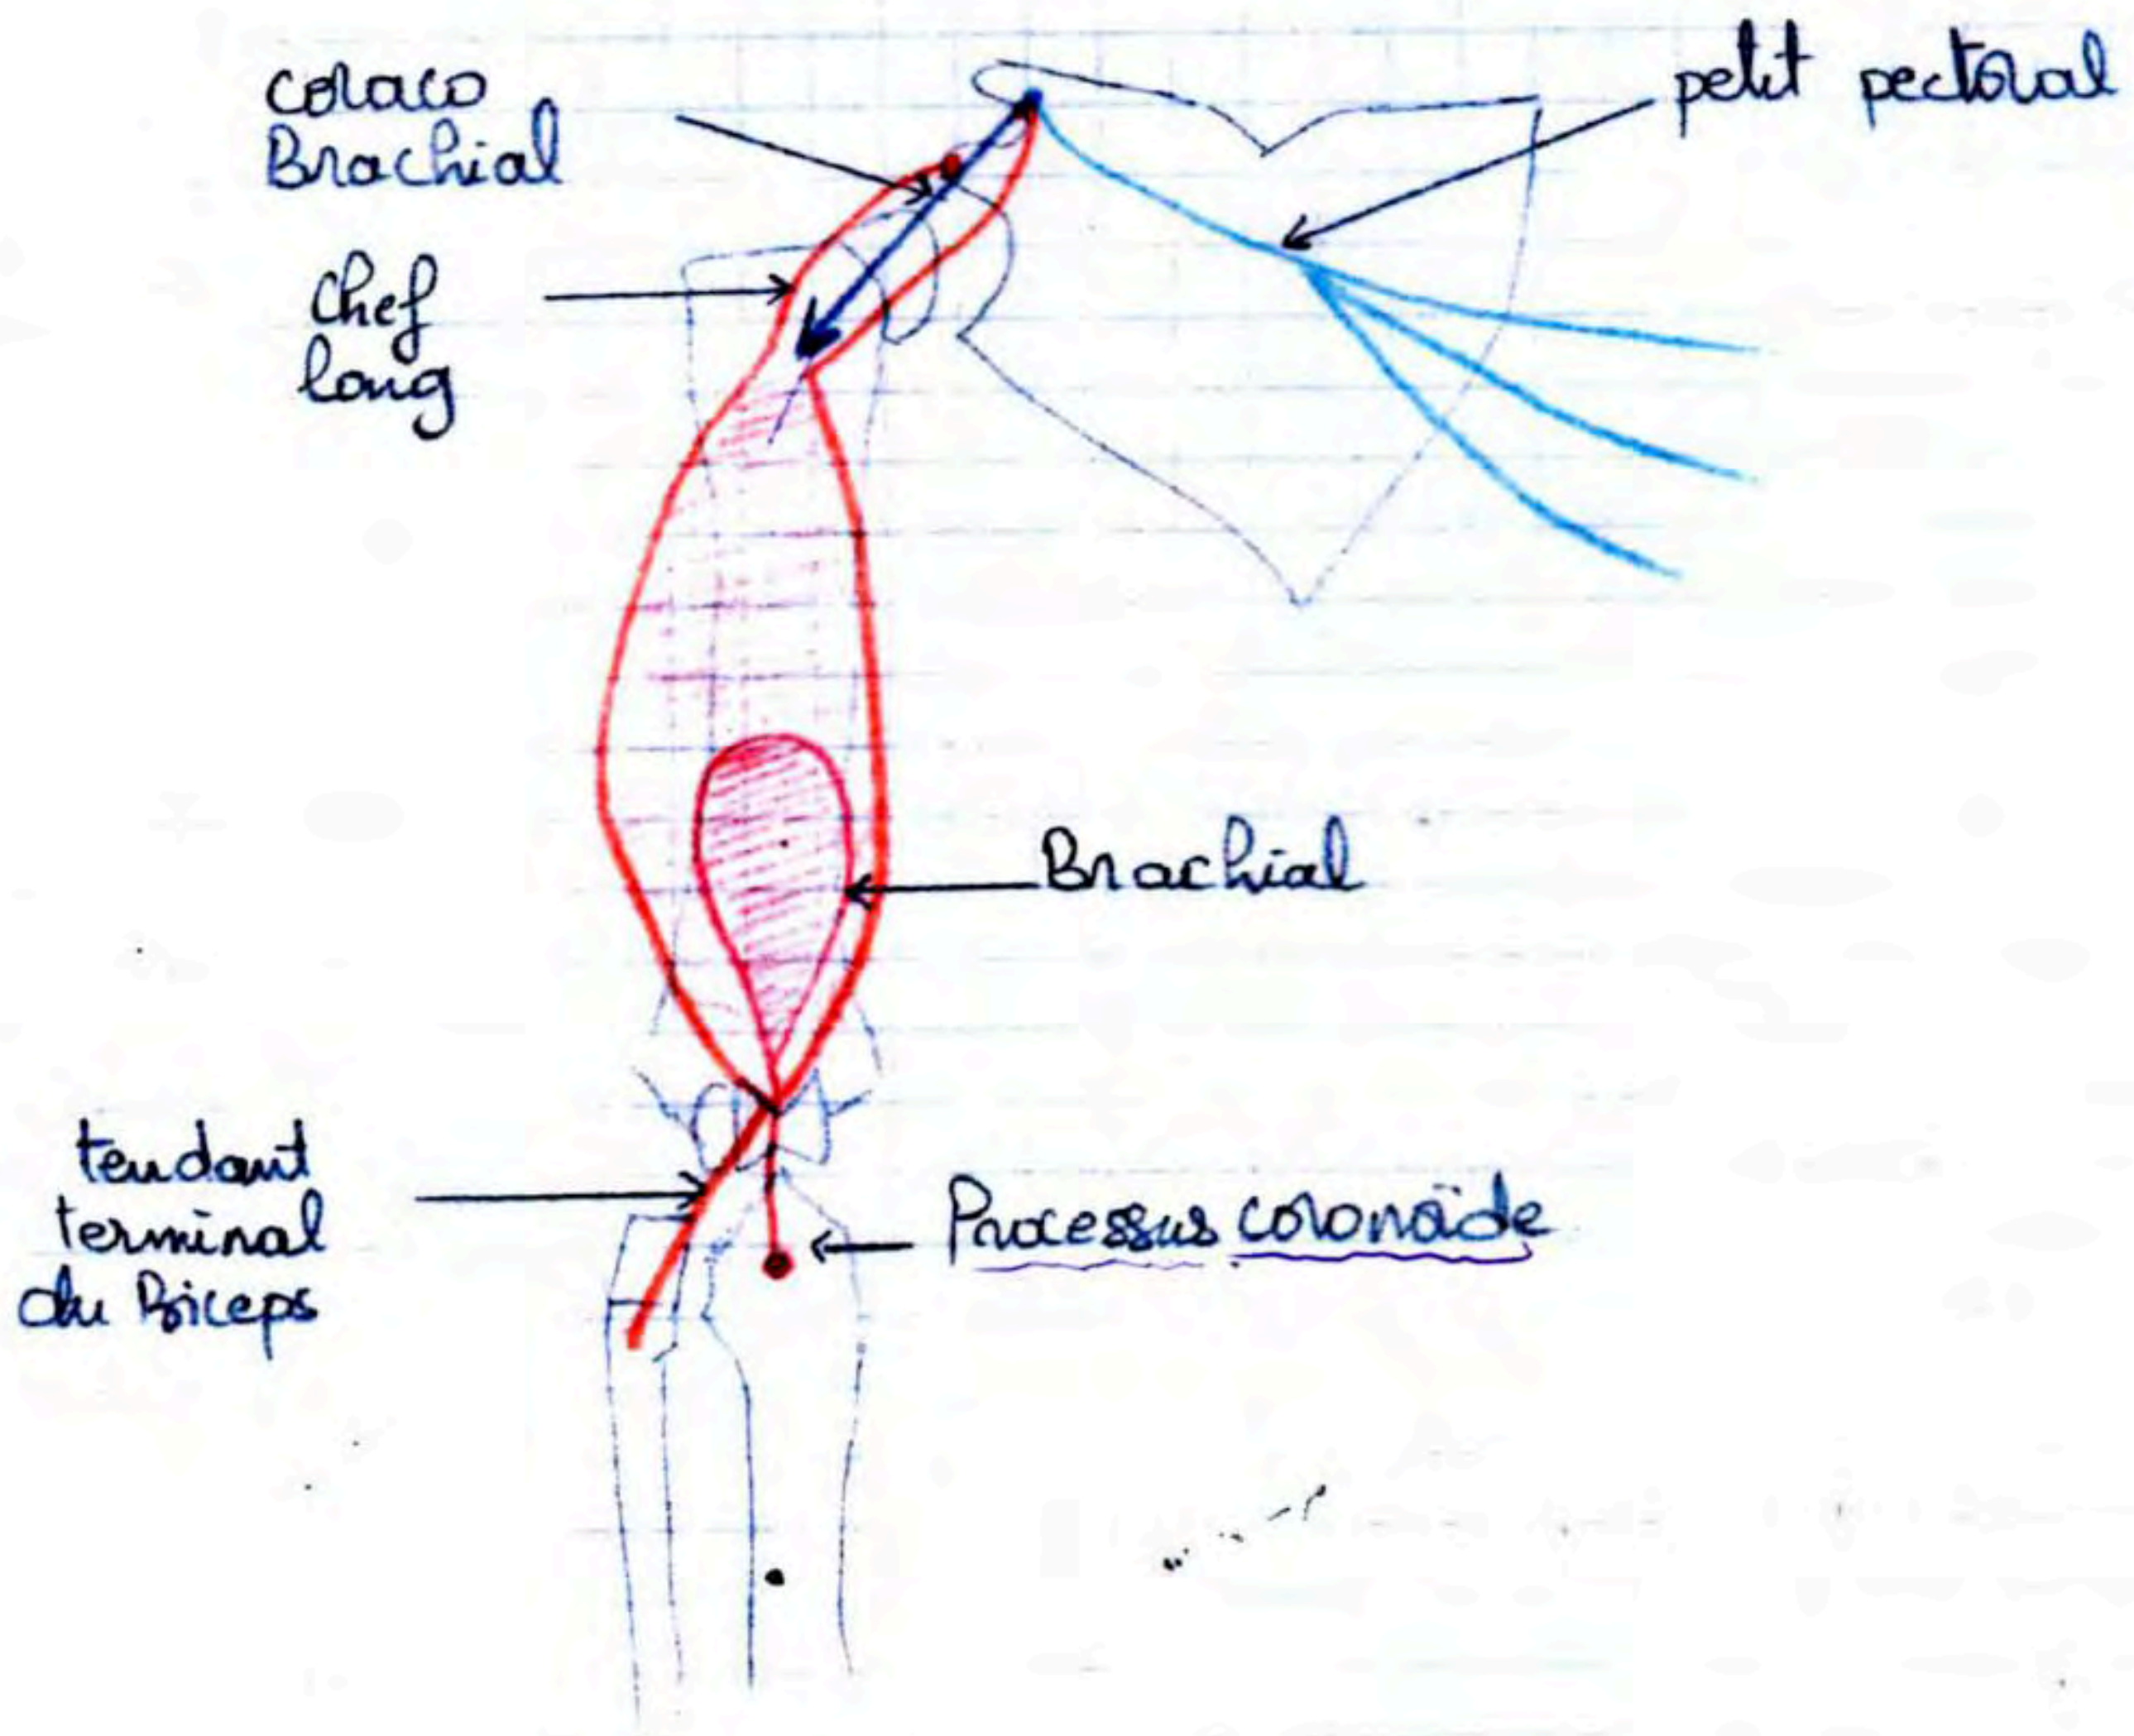 coraco
Brachial
petit pectoral
Chef
long
Brachial
tendant
terminal
du Biceps
Processus coronoïde